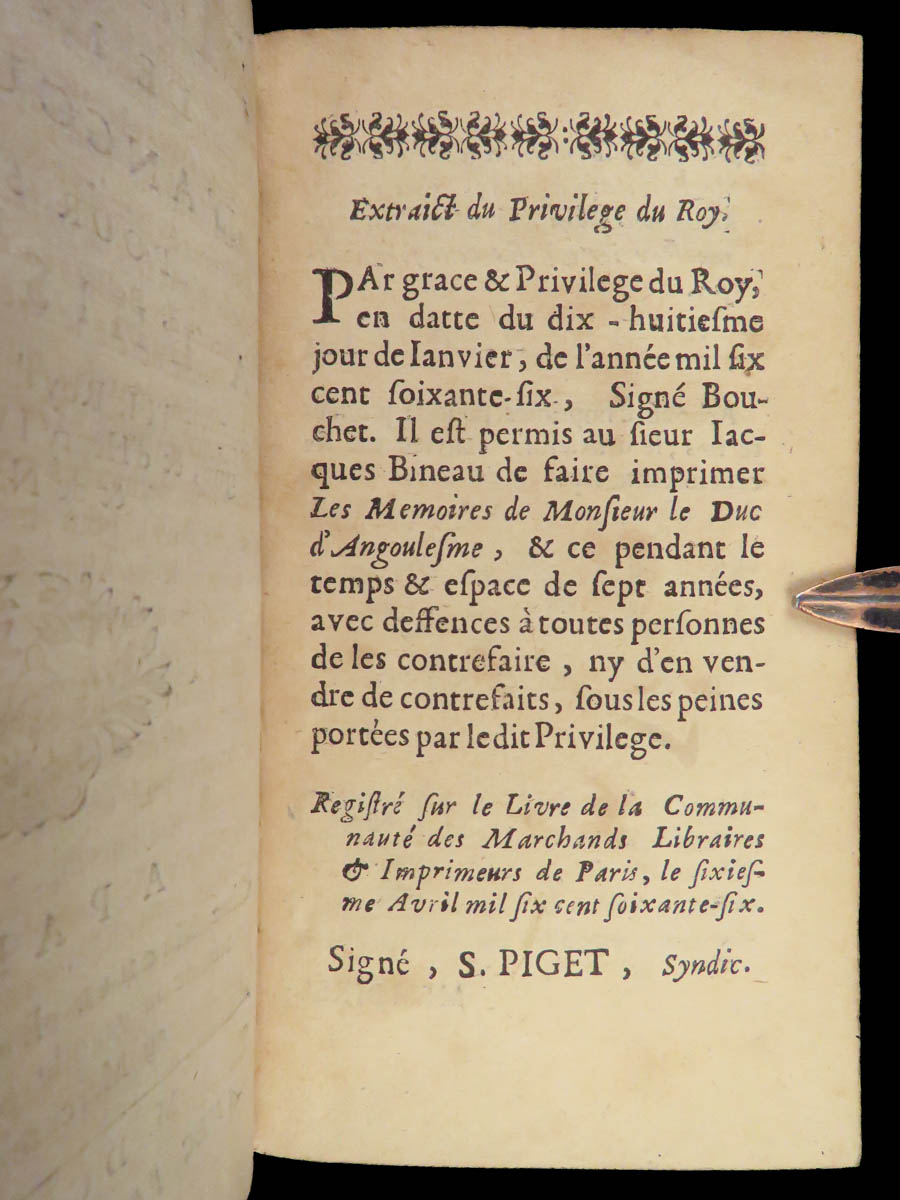 Extraict du Privilege du Roy.
PAr grace & Privilege du Roy,
en datte du dix-huitiesme
jour de Ianvier, de l'année mil six
cent soixante-six, Signé Bou-
chet. Il est permis au sieur Iac-
ques Bineau de faire imprimer
Les Memoires de Monsieur le Duc
d'Angoulesme, & ce pendant le
temps & espace de sept années,
avec deffences à toutes personnes
de les contrefaire, ny d'en ven-
dre de contrefaits, sous les peines
portées par ledit Privilege.
Registré sur le Livre de la Commu-
nauté des Marchands Libraires
& Imprimeurs de Paris, le sixies-
me Avril mil six cent soixante-six.
Signé, S. PIGET, Syndic.